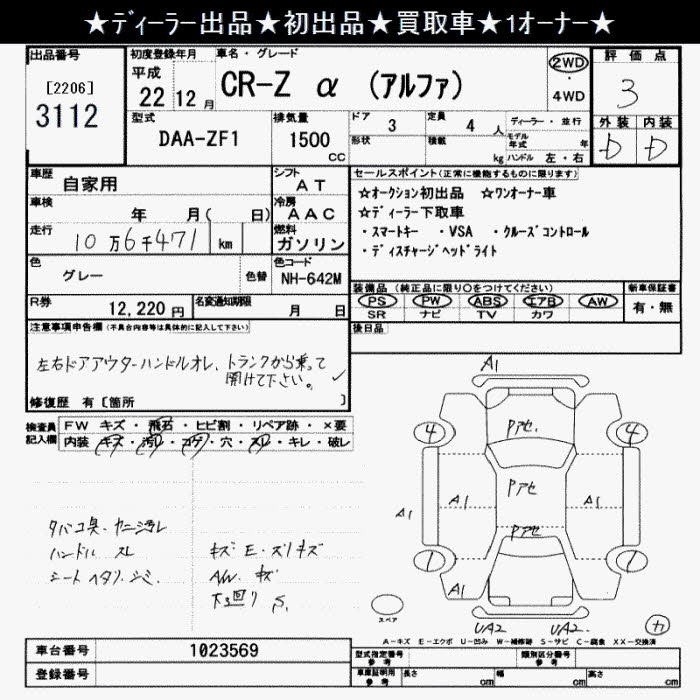 ★ﾃﾞｨｰﾗｰ出品★初出品★買取車★1ｵｰﾅｰ★
出品番号
[2206]
3112
初度登録年月
平成
22 年 12 月
車名・グレード
CR-Z α (アルファ)
2WD
・
4WD
評価点
3
外装 内装
D D
型式
DAA-ZF1
排気量
1500
CC
ドア
3
定員
4 人
形状
積載
kg
ディーラー・並行
モデル
年式 年
ハンドル 左・右
車歴
自家用
車検
年 月( 日)
走行
10万6千471 km
色
グレー
色替
シフト
AT
冷房
AAC
燃料
ガソリン
色コード
NH-642M
セールスポイント(正常に機能するものに限ります)
☆オークション初出品 ☆ワンオーナー車
☆ディーラー下取車
・スマートキー ・VSA ・クルーズコントロール
・ディスチャージヘッドライト
装備品 (純正品に限り○をつけてください)
PS PW ABS エアB AW
SR ナビ TV カワ
新車保証書
有・無
後日品
R券
12,220円
名変通知期限
月 日
注意事項申告欄(不具合内容等は具体的に記入して下さい)
左右ドアアウターハンドルオレ、トランクから乗って
開けて下さい。
修復歴 有〔箇所 〕
検査員
記入欄
FW キズ・飛石・ヒビ割・リペア跡・×要
内装 キズ・汚レ・コゲ・穴・スレ・キレ・破レ
タバコ臭・ヤニ汚レ
ハンドル スレ
シート ヘタリ・シミ
キズ・E・スリキズ
A/W キズ
下廻り S
A1
Pアセ.
4 4
Pアセ
A1 A1 A1
Pアセ
1 1
A1
UA2 UA2
スペア
カ
A-キズ E-エクボ U-凹み W-補修跡 S-サビ C-腐食 XX-交換済
車台番号
1023569
登録番号
型式指定番号
参考
類別区分番号
参考
車庫証明用
参考
長さ cm 幅 cm 高さ cm